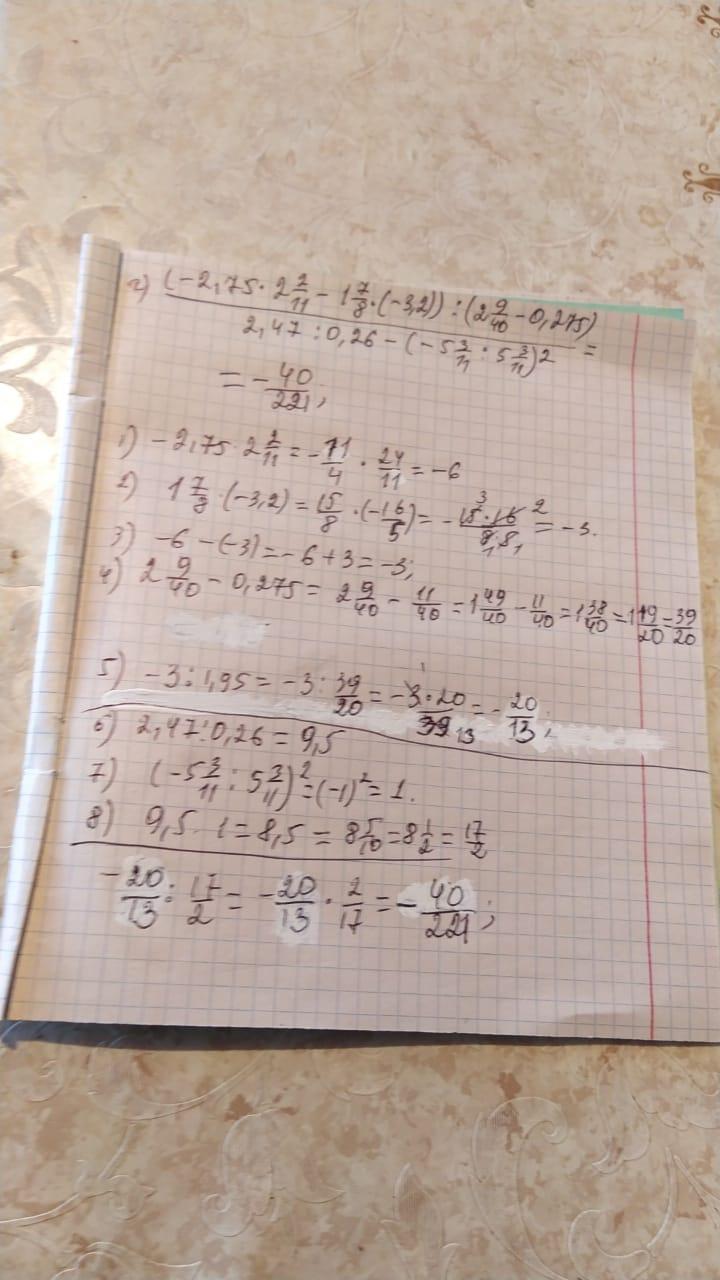 г) (-2,75·2 2/11 - 1 7/8·(-3,2)) : (2 9/40 - 0,275)
2,47 : 0,26 - (-5 3/11 : 5 3/11)2 =
= - 40/221;
1) -2,75·2 2/11 = - 11/4 · 24/11 = -6
2) 1 7/8 ·(-3,2) = 15/8 ·(- 16/5) = - 15·16/8·8 3 2 1 1 = -3.
3) -6 -(-3) = -6 + 3 = -3;
4) 2 9/40 - 0,275 = 2 9/40 - 11/40 = 1 49/40 - 11/40 = 1 38/40 = 1 19/20 = 39/20
5) -3 : 1,95 = -3 : 39/20 = - 3·20/39 1 13 = - 20/13;
6) 2,47 : 0,26 = 9,5
7) (-5 3/11 : 5 3/11)² = (-1)² = 1.
8) 9,5 - 1 = 8,5 = 8 5/10 = 8 1/2 = 17/2
- 20/13 : 17/2 = - 20/13 · 2/17 = - 40/221;